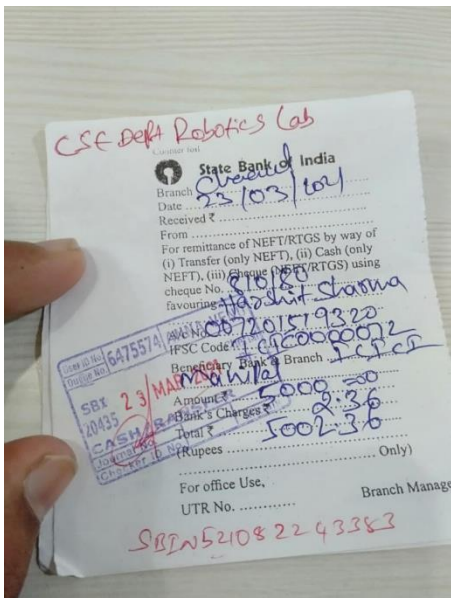 CSE Dept Robotics Lab
State Bank of India
Branch
Date 23/03/2021
Received ₹
From
For remittance of NEFT/RTGS by way of
(i) Transfer (only NEFT), (ii) Cash (only
NEFT), (iii) Cheque (NEFT/RTGS) using
cheque No. 810180
favouring Harshit Sharma
A/c No. 007201519320
IFSC Code ICIC0000072
Beneficiary Bank & Branch ICICI
Amount ₹ 5000=00
Bank's Charges ₹ 2.36
Total ₹ 5002.36
(Rupees
Only)
For office Use,
Branch Manage
UTR No.
SBIN521082243383
User ID No. 6475574
SBI 23 MAR
20435
CASH